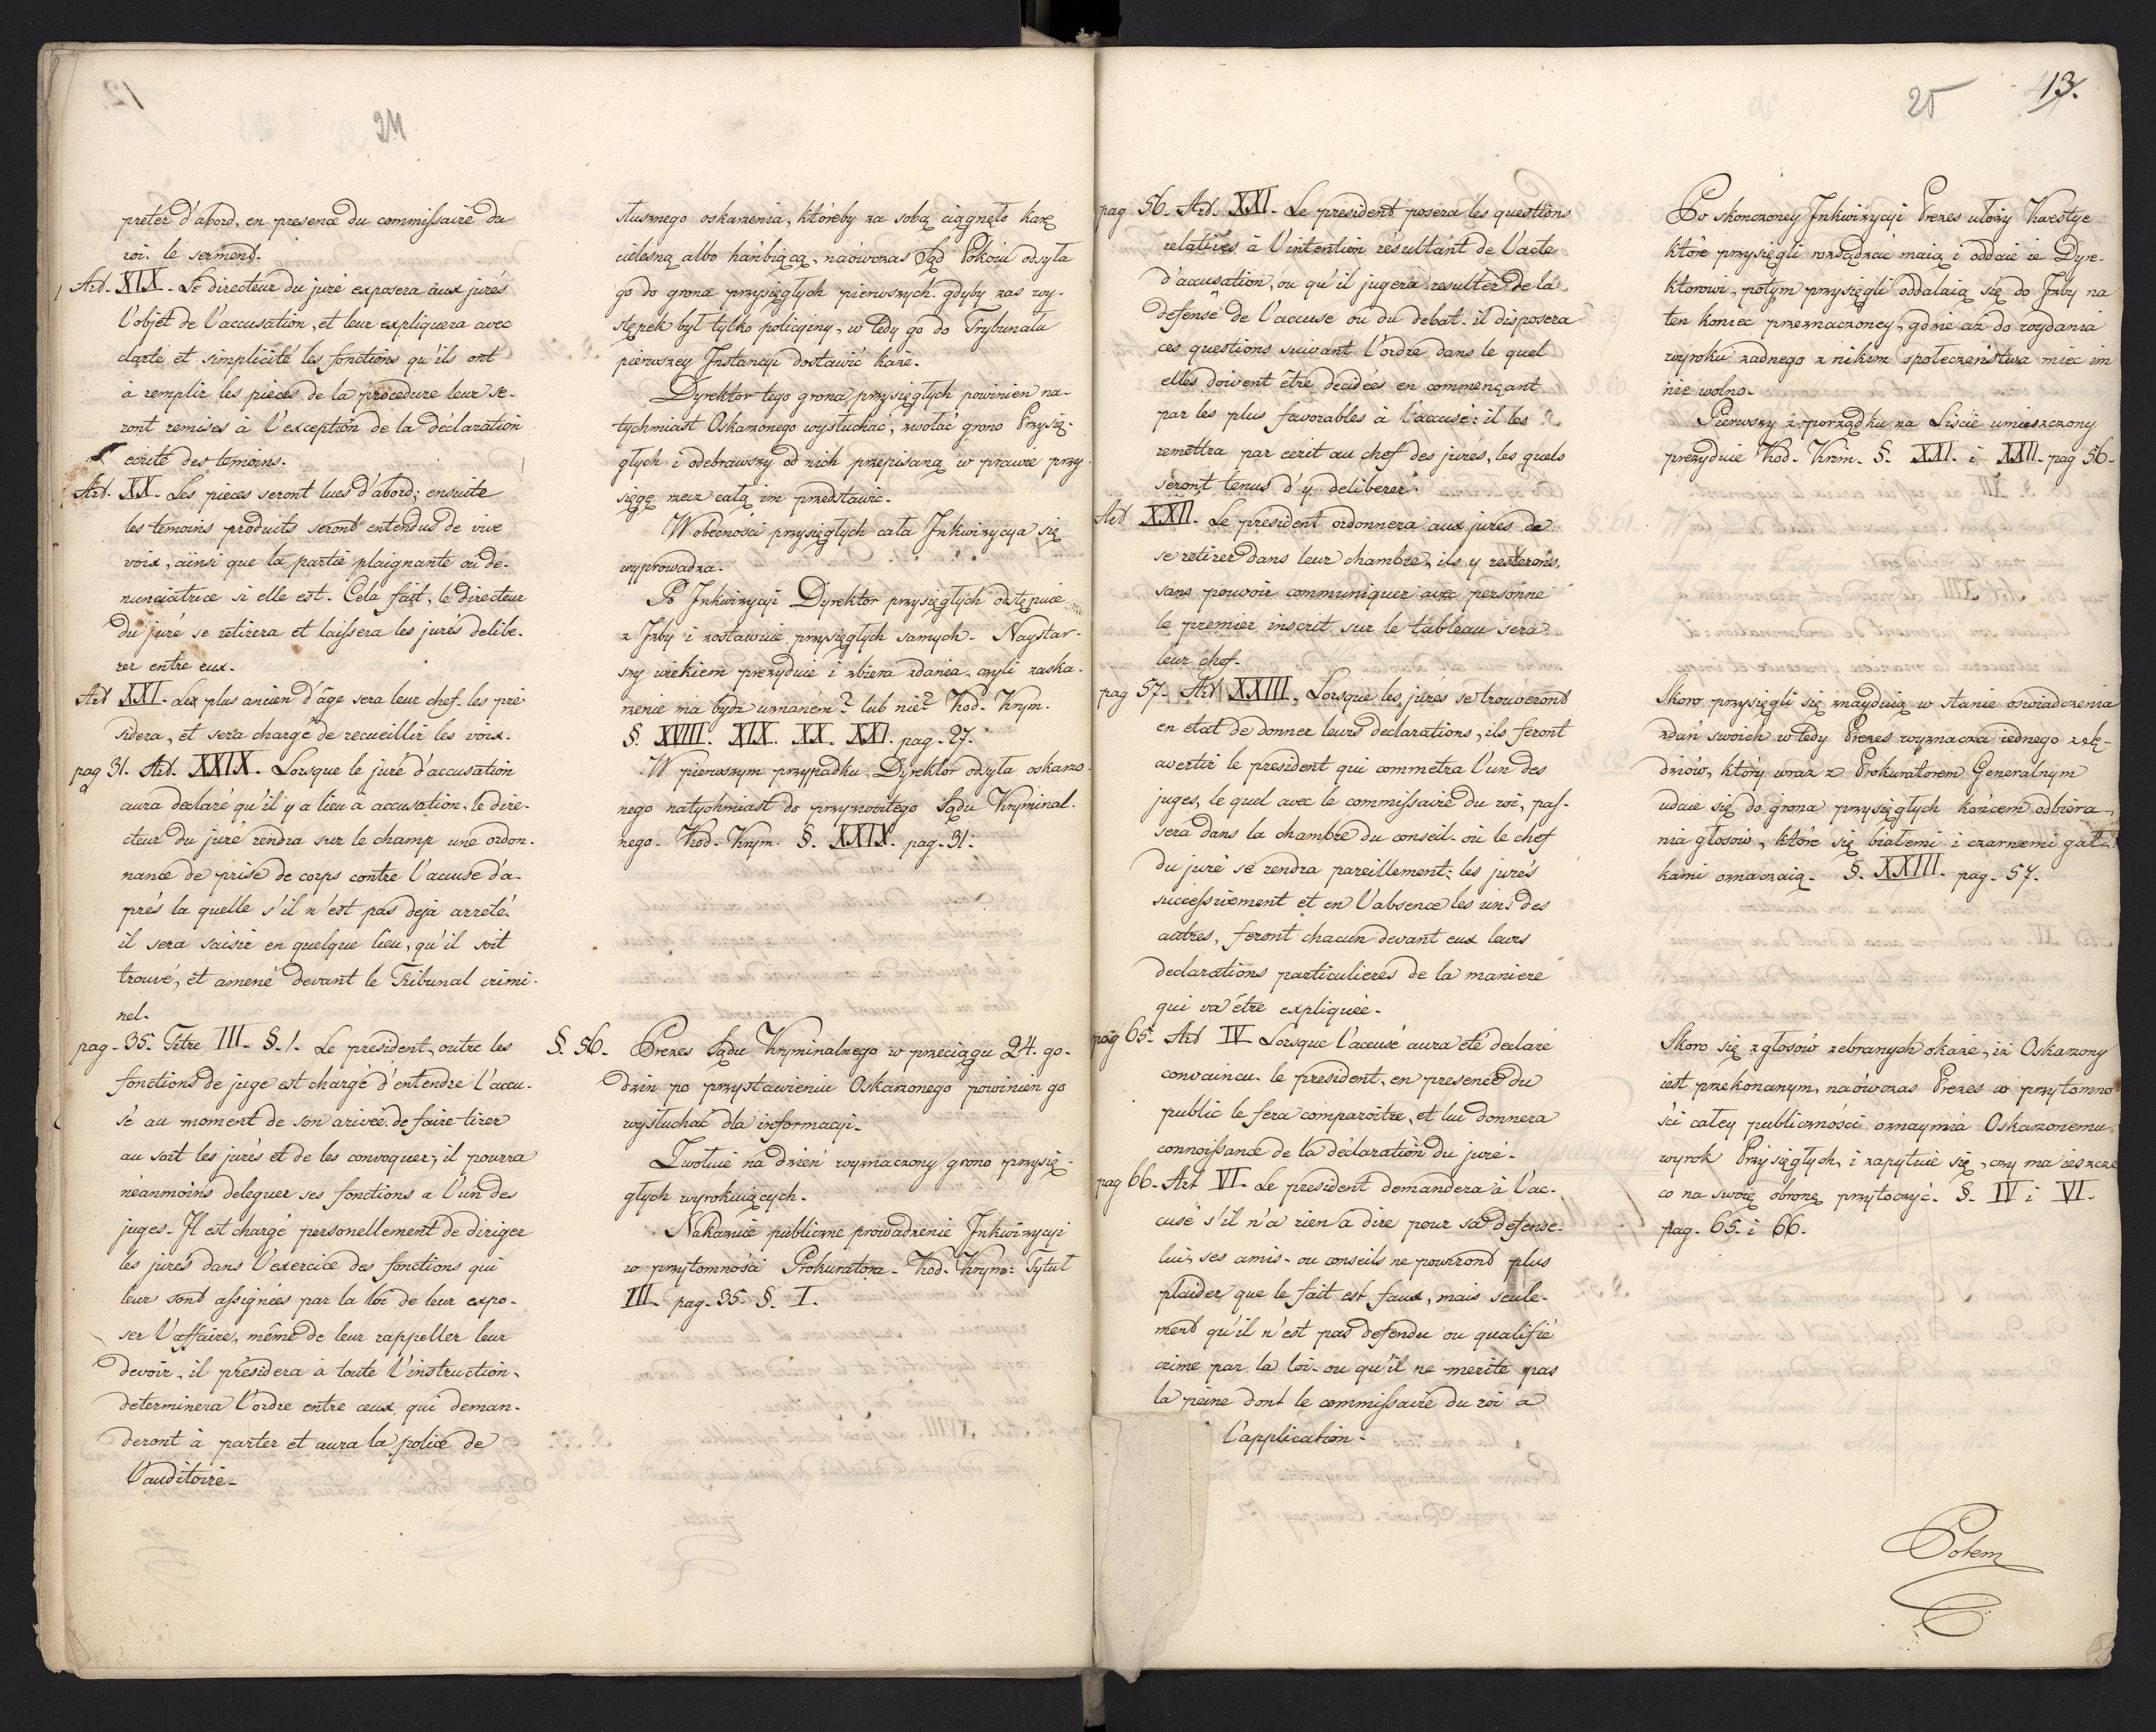 24
preter d'abord, en presence du commissaire du
roi. le serment.
Art. XIX. Le directeur du juré exposera aux jurés
l'objet de l'accusation, et leur expliquera avec
clarté et simplicité les fonctions qu'ils ont
à remplir les pieces de la procedure leur se-
ront remises à l'exception de la déclaration
ecrite des temoins.
Art. XX. Les pieces seront lues d'abord; ensuite
les temoins produits seront entendus de vive
voix, ainsi que la partie plaignante ou de-
nunciatrice si elle est. Cela fait, le directeur
du juré se retirera et laissera les jurés delibe-
rer entre eux.
Art XXI. Les plus ancien d'âge sera leur chef. les pré
sidera, et sera chargé de recueillir les voix.
pag 31. Art. XXIX. Lorsque le juré d'accusation
aura declaré qu'il y a lieu a accusation. le dire-
cteur du juré rendra sur le champ une ordon-
nance de prise de corps contre l'accusé d'a-
prés la quelle s'il n'est pas deja arreté.
il sera saisir en quelque lieu, qu'il soit
trouvé, et amené devant le Tribunal crimi-
nel.
pag. 35. Titre III. §. 1. Le president, outre les
fonctions de juge est chargé d'entendre l'accu-
sé au moment de son arivée. de faire tirer
au sort les jurés et de les convoquer; il pourra
néanmoins deleguer ses fonctions a l'un des
juges. Il est chargé personellement de diriger
les jurés dans l'exercice des fonctions qui
leur sont assignées par la loi de leur expo-
ser l'affaire, même de leur rappeller leur
devoir, il présidera à toute l'instruction.
determinera l'ordre entre ceux qui deman-
deront à parter et aura la police de
l'auditoire.
słusznego oskarżenia, któreby za sobą ciągnęło karę
cielesną albo hańbiącą, naówczas Sąd Pokoiu odsyła
go do grona przysięgłych pierwszych. gdyby zas wy-
stępek był tylko policyiny, w tedy go do Trybunału
pierwszey Instancyi dostawić każe.
Dyrektor tego grona przysięgłych powinien na-
tychmiast Oskarżonego wysłuchać, zwołać grono Przysię-
głych i odebrawszy od nich przepisaną w prawie przy-
sięgę rzecz całą im przedstawić.
W obecności przysięgłych cała Inkwizycya się
wyprowadza.
Po Inkwizycyi Dyrektor przysięgłych odstępuie
z Izby i zostawuie przysięgłych samych. Naystar-
szy wiekiem prezyduie i zbiera zdania, czyli zaska-
rzenie ma bydz uznaném? lub nie? Kod. Krym.
§. XVIII. XIX. XX. XXI. pag. 27.
W pierwszym przypadku, Dyrektor odsyła oskarżo-
nego natychmiast do przyzwoitego Sądu Kryminal-
nego. Kod. Krym. §. XXIX. pag. 31.
§. 56. Prezes Sądu Kryminalnego w przeciągu 24. go-
dzin po przystawieniu Oskarżonego powinien go
wysłuchać dla informacyi.
Zwołuie na dzień wyznaczony grono przysię-
głych wyrokuiących.
Nakazuie publiczne prowadzenie Inkwizycyi
w przytomności Prokuratora. Kod. Krym. Tytuł
III. pag. 35. §. I.
25
13.
pag. 56. Art. XXI. Le president posera les questions
relatives à l'intention résultant de l'acte
d'accusation, ou qu'il jugera resulter de la
defense de l'accuse ou du debat. il disposera
ces questions suivant l'ordre dans le quel
elles doivent être decidées en commençant
par les plus favorables à l'accuse: il les
remettra par ecrit au chef des jurés, les quels
seront tenus d'y deliberer.
Art XXII. Le president ordonnera aux jures de
se retirer dans leur chambre, ils y resterons.
sans pouvoir communiquer avec personne
le premier inscrit sur le tableau sera
leur chef.
pag 57. Art XXIII. Lorsque les jurés se trouveront
en etat de donner leurs declarations, ils feront
avertir le president qui commetra l'un des
juges, le quel avec le commissaire du roi, pas-
sera dans la chambre du conseil. où le chef
du juré se rendra pareillement: les jurés
successivement et en l'absence les uns des
autres, feront chacun devant eux leurs
declarations particulieres de la maniere
qui va être expliquée.
pag 65. Art IV Lorsque l'accusé aura eté declaré
convaincu. le president, en presence du
public le fera comparoitre, et lui donnera
connoissance de la déclaration du juré.
pag 66. Art VI. Le president demandera à l'ac-
cusé s'il n'a rien a dire pour sa defense.
lui, ses amis. ou conseils ne pourront plus
plaider que le fait est faux, mais seule-
ment qu'il n'est pas defendu ou qualifié
crime par la loi. ou qu'il ne merite pas
la peine dont le commissaire du roi a
l'application.
Po skończoney Inkwizycyi Prezes ułoży Kwestye
które przysięgli rozsądzać maią i oddaie ie Dyre-
ktorowi, potym przysięgli oddalaią się do Izby na
ten koniec przeznaczoney, gdzie aż do wydania
wyroku zadnego z nikim społeczeństwa miec im
nie wolno.
Pierwszy z porządku na Liście umieszczony
prezyduie Kod. Krym. §. XXI. i XXII. pag 56.
Skoro przysięgli się znayduią w stanie oswiadczenia
zdań swoich w tedy Prezes wyznacza iednego z sę-
dziów, który wraz z Prokuratorem Generalnym
udaie się do grona przysięgłych końcem odbiera-
nia głosów, które się białemi i czarnemi gał-
kami oznaczaią. §. XXIII. pag. 57.
Skoro się z głosów zebranych okaże, iż Oskarżony
iest przekonanym, naówczas Prezes w przytomno
ści całey publiczności oznaymia Oskarżonemu
wyrok Przysięgłych, i zapytuie się, czy ma ieszcze
co na swoię obronę przytoczyć. §. IV i VI.
pag. 65. i 66.
Potem